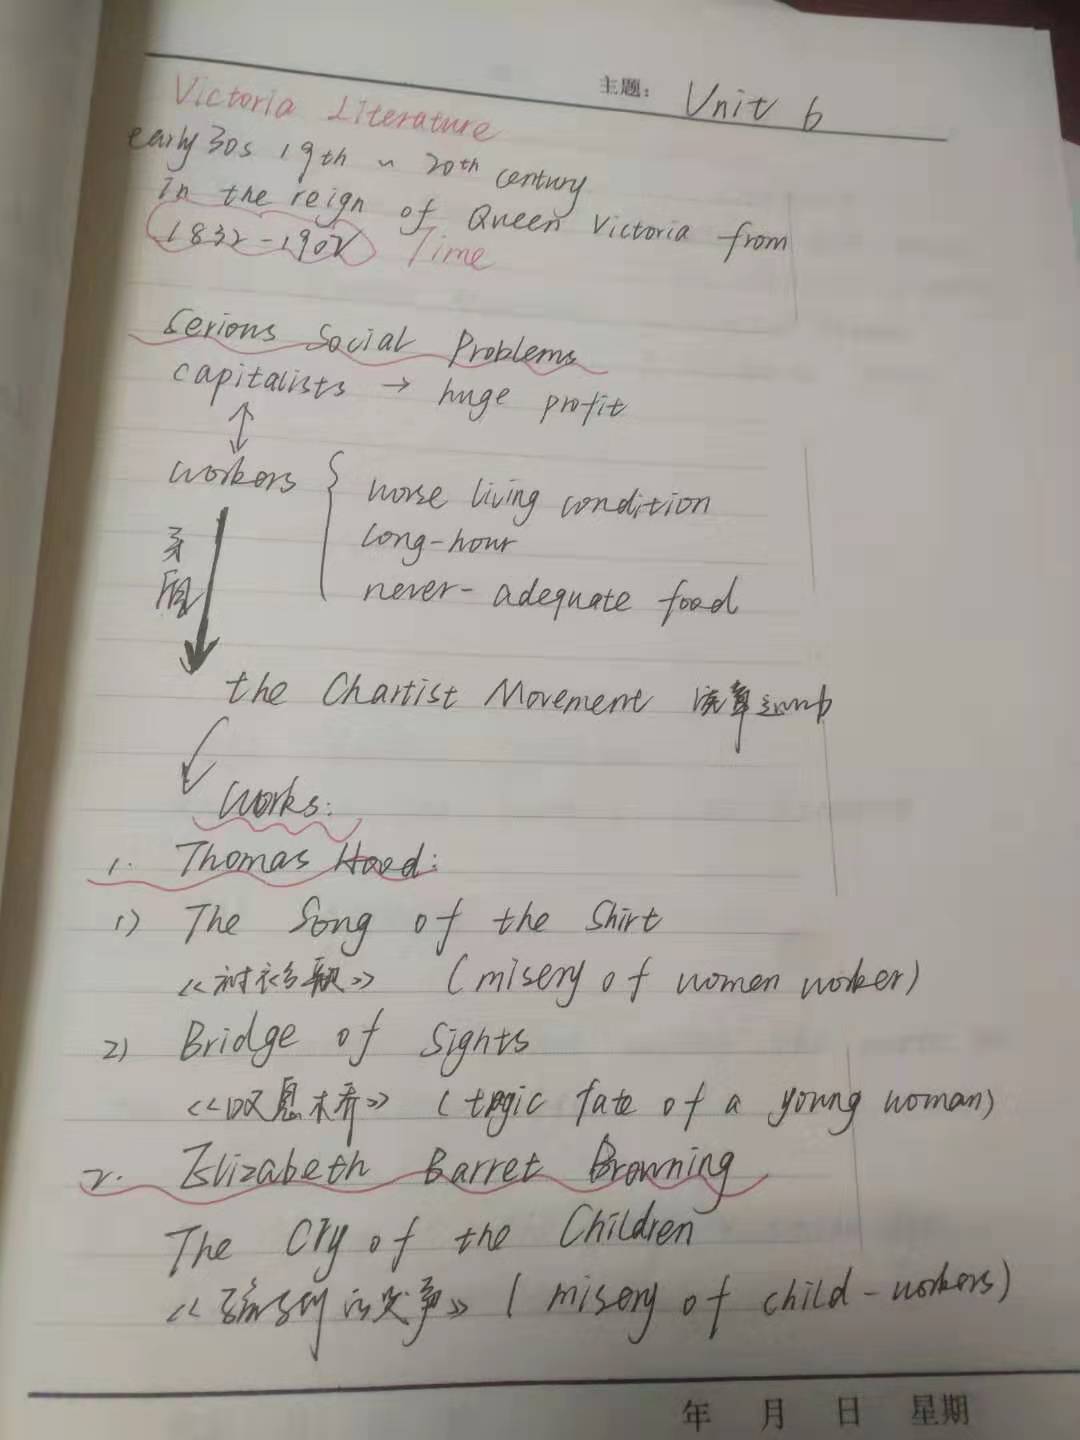 主题: Unit 6
Victoria Literature
early 30s 19th ~ 20th century
In the reign of Queen Victoria from
1832-1902 Time
Serious Social Problems
capitalists → huge profit
↕
workers { worse living condition
long-hour
never-adequate food
矛盾
the Chartist Movement 宪章运动
Works:
1. Thomas Hood:
1) The Song of the Shirt
《衬衫歌》 (misery of women worker)
2) Bridge of Sights
《叹息桥》 (tragic fate of a young woman)
2. Elizabeth Barret Browning
The Cry of the Children
《孩子们的哭声》 (misery of child-workers)
年 月 日 星期